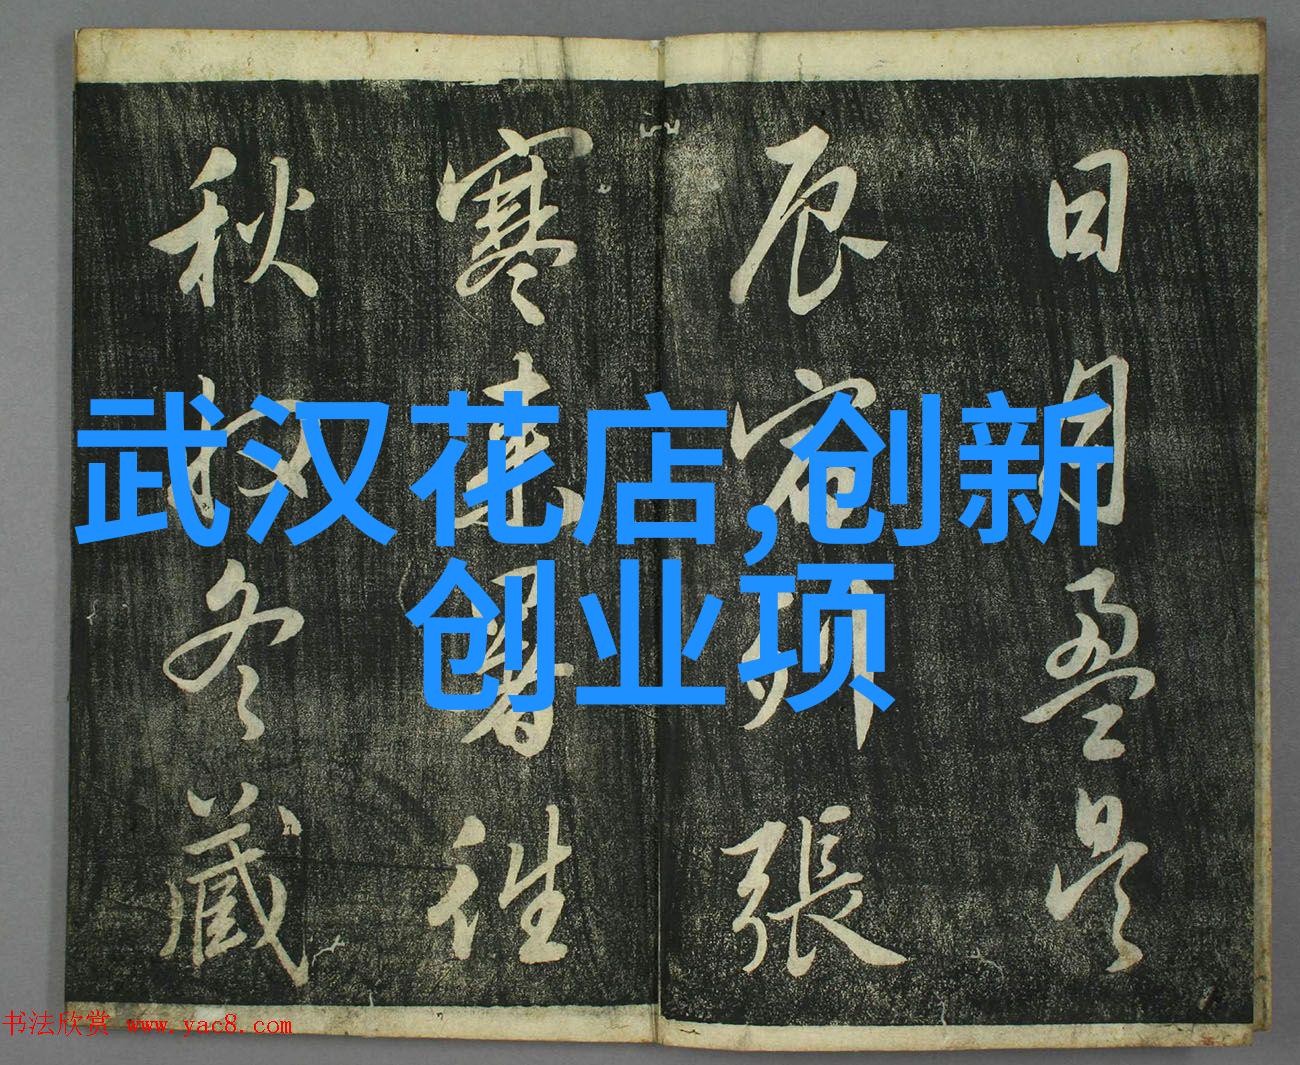 日月盈昃
辰宿列張
寒来暑往
秋收冬藏
武汉花店,创新
创业项
书法欣赏 www.yac8.com